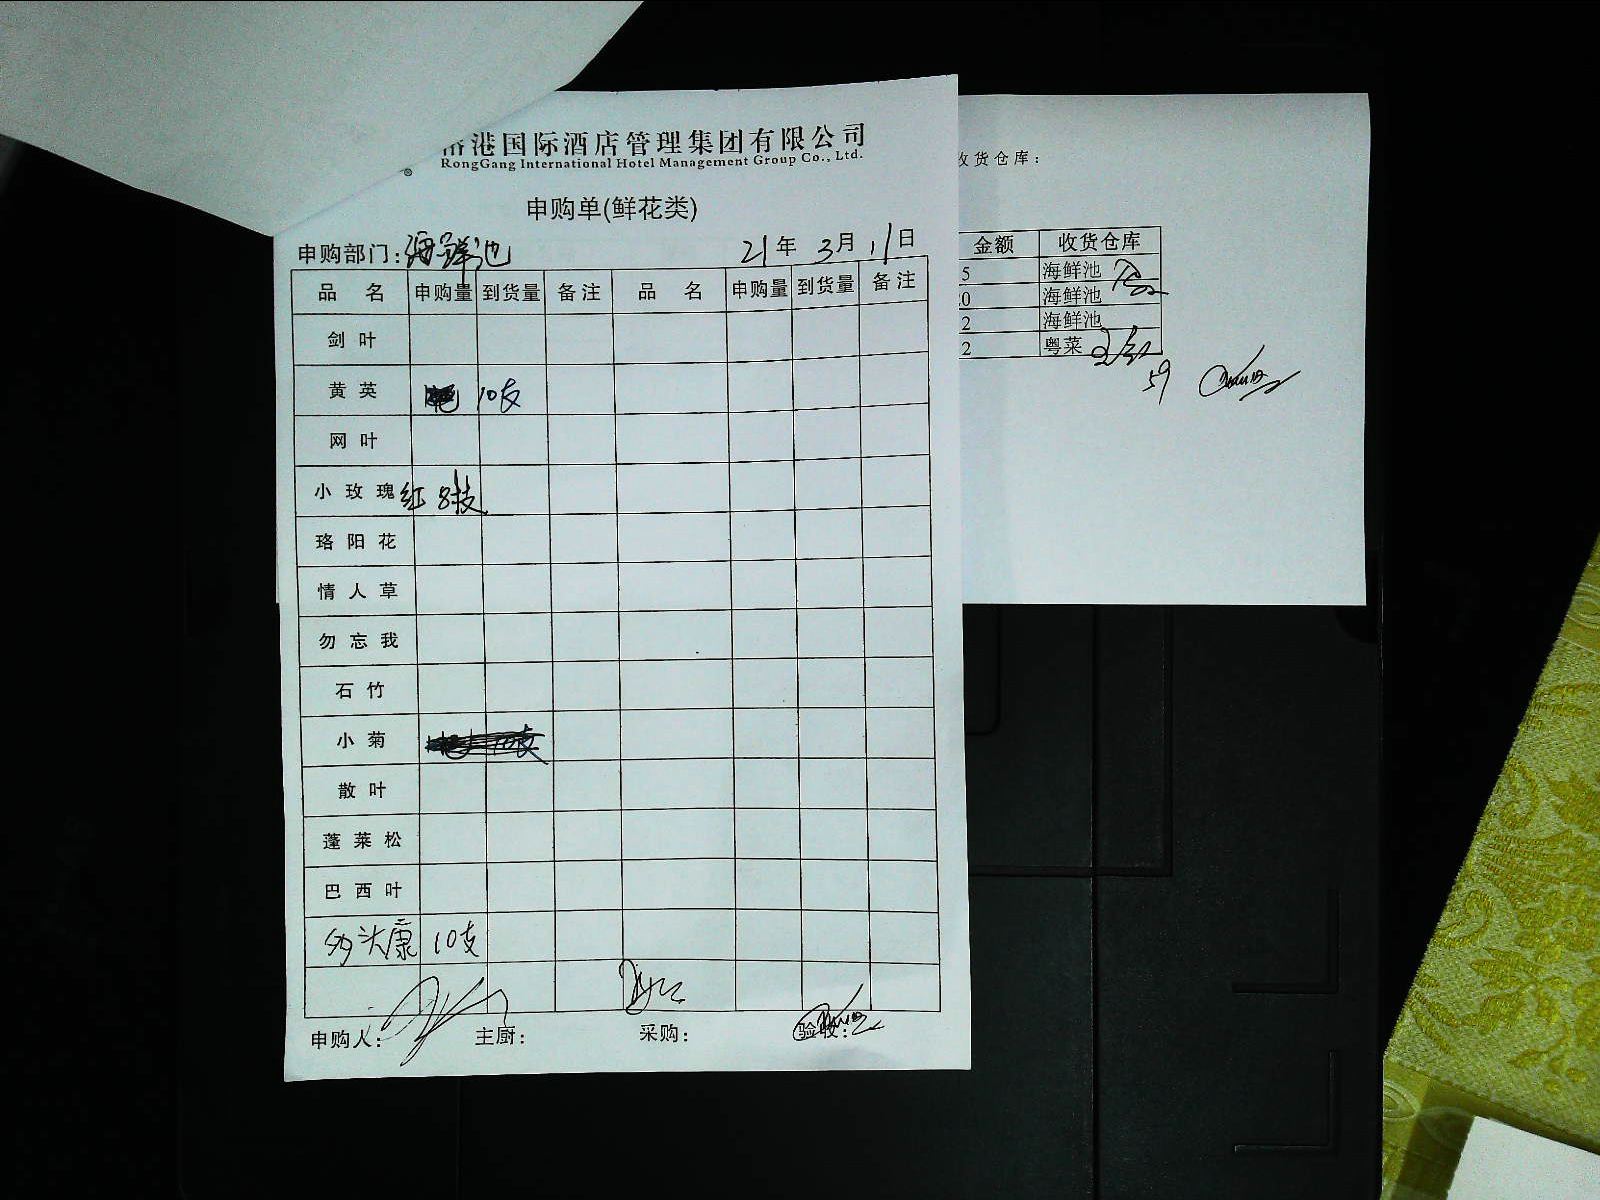 港国际酒店管理集团有限公司
RongGang International Hotel Management Group Co., Ltd.
®
申购单(鲜花类)
申购部门：海鲜池 21年 3月 11日
品 名 申购量 到货量 备注 品 名 申购量 到货量 备注
剑叶
黄英 10支
网叶
小玫瑰 红 8枝
珞阳花
情人草
勿忘我
石竹
小菊
散叶
蓬莱松
巴西叶
10支
申购人： 主厨： 采购： 验收：
收货仓库：
金额 收货仓库
5 海鲜池
20 海鲜池
2 海鲜池
2 粤菜
59